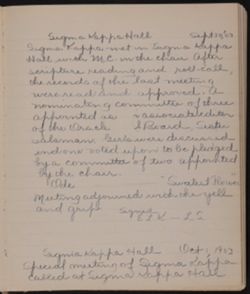 Sigma Kappa Hall Sept
Sigma Kappa met in Sigma Kappa
Hall with M.C. in the chair. After
scripture reading and roll-call,
the records of the last meeting
were read and approved. A
nominating committee of three
appointed as associate editor
of the Oracle Board, Sister
Salaman. Girls were discussed
and one voted upon to be pledged
by a committee of two appointed
by the chair.
Meeting adjourned with the yell
and grip
Sigma Kappa Hall Oct 1, 1903
Special meeting of Sigma Kappa
called at Sigma Kappa Hall